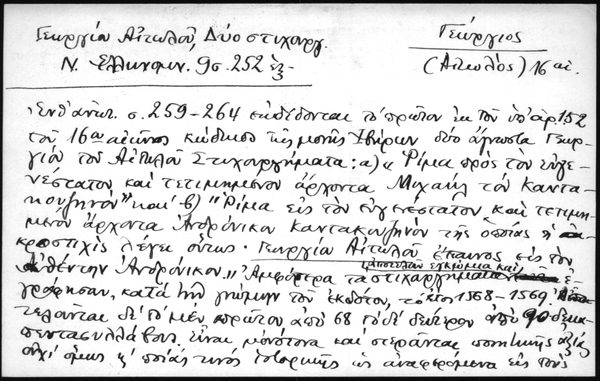 Γεωργίου Αἰτωλοῦ, Δύο στιχουργ.
Γεώργιος
Ν. Ἑλληνομν. 9 σ. 252 ἑξ.
(Αἰτωλός) 16 αἰ.
Ἐνθ' ἀνωτ. σ. 259-264 ἐκδίδονται τὸ πρῶτον ἐκ τοῦ ὑπ' ἀρ. 152
τοῦ 16ου αἰῶνος κώδικος τῆς μονῆς Ἰβήρων δύο ἄγνωστα Γεωρ-
γίου τοῦ Αἰτωλοῦ Στιχουργήματα: α) "Ρίμα πρὸς τὸν εὐγε-
νέστατον καὶ τετιμημένον ἄρχοντα Μιχαὴλ τὸν Καντα-
κουζηνὸν" καὶ β) "Ρίμα εἰς τὸν εὐγενέστατον καὶ τετιμη-
μένον ἄρχοντα Ἀνδρόνικον Καντακουζηνὸν τῆς ὁποίας ἡ ἀ-
κροστιχὶς λέγει οὕτως· Γεωργίου Αἰτωλοῦ ἔπαινος εἰς τὸν
αὐθέντην Ἀνδρόνικον." Ἀμφότερα τὰ στιχουργήματα ἐ-
ἀποτελοῦν ἐγκώμια καὶ
γράφησαν, κατὰ τὴν γνώμην τοῦ ἐκδότου, τὸ ἔτος 1568-1569. Ἀπο
τελοῦνται δὲ τὸ μὲν πρῶτον ἀπὸ 68 τὸ δὲ δεύτερον ἀπὸ 90 δεκα-
πεντασυλλάβους. εἶναι μονότονα καὶ στεροῦνται ποιητικῆς ἀξίας
οὐχὶ ὅμως καὶ ποιᾶς τινος ἱστορικῆς ὡς ἀναφερόμενα εἰς τοὺς